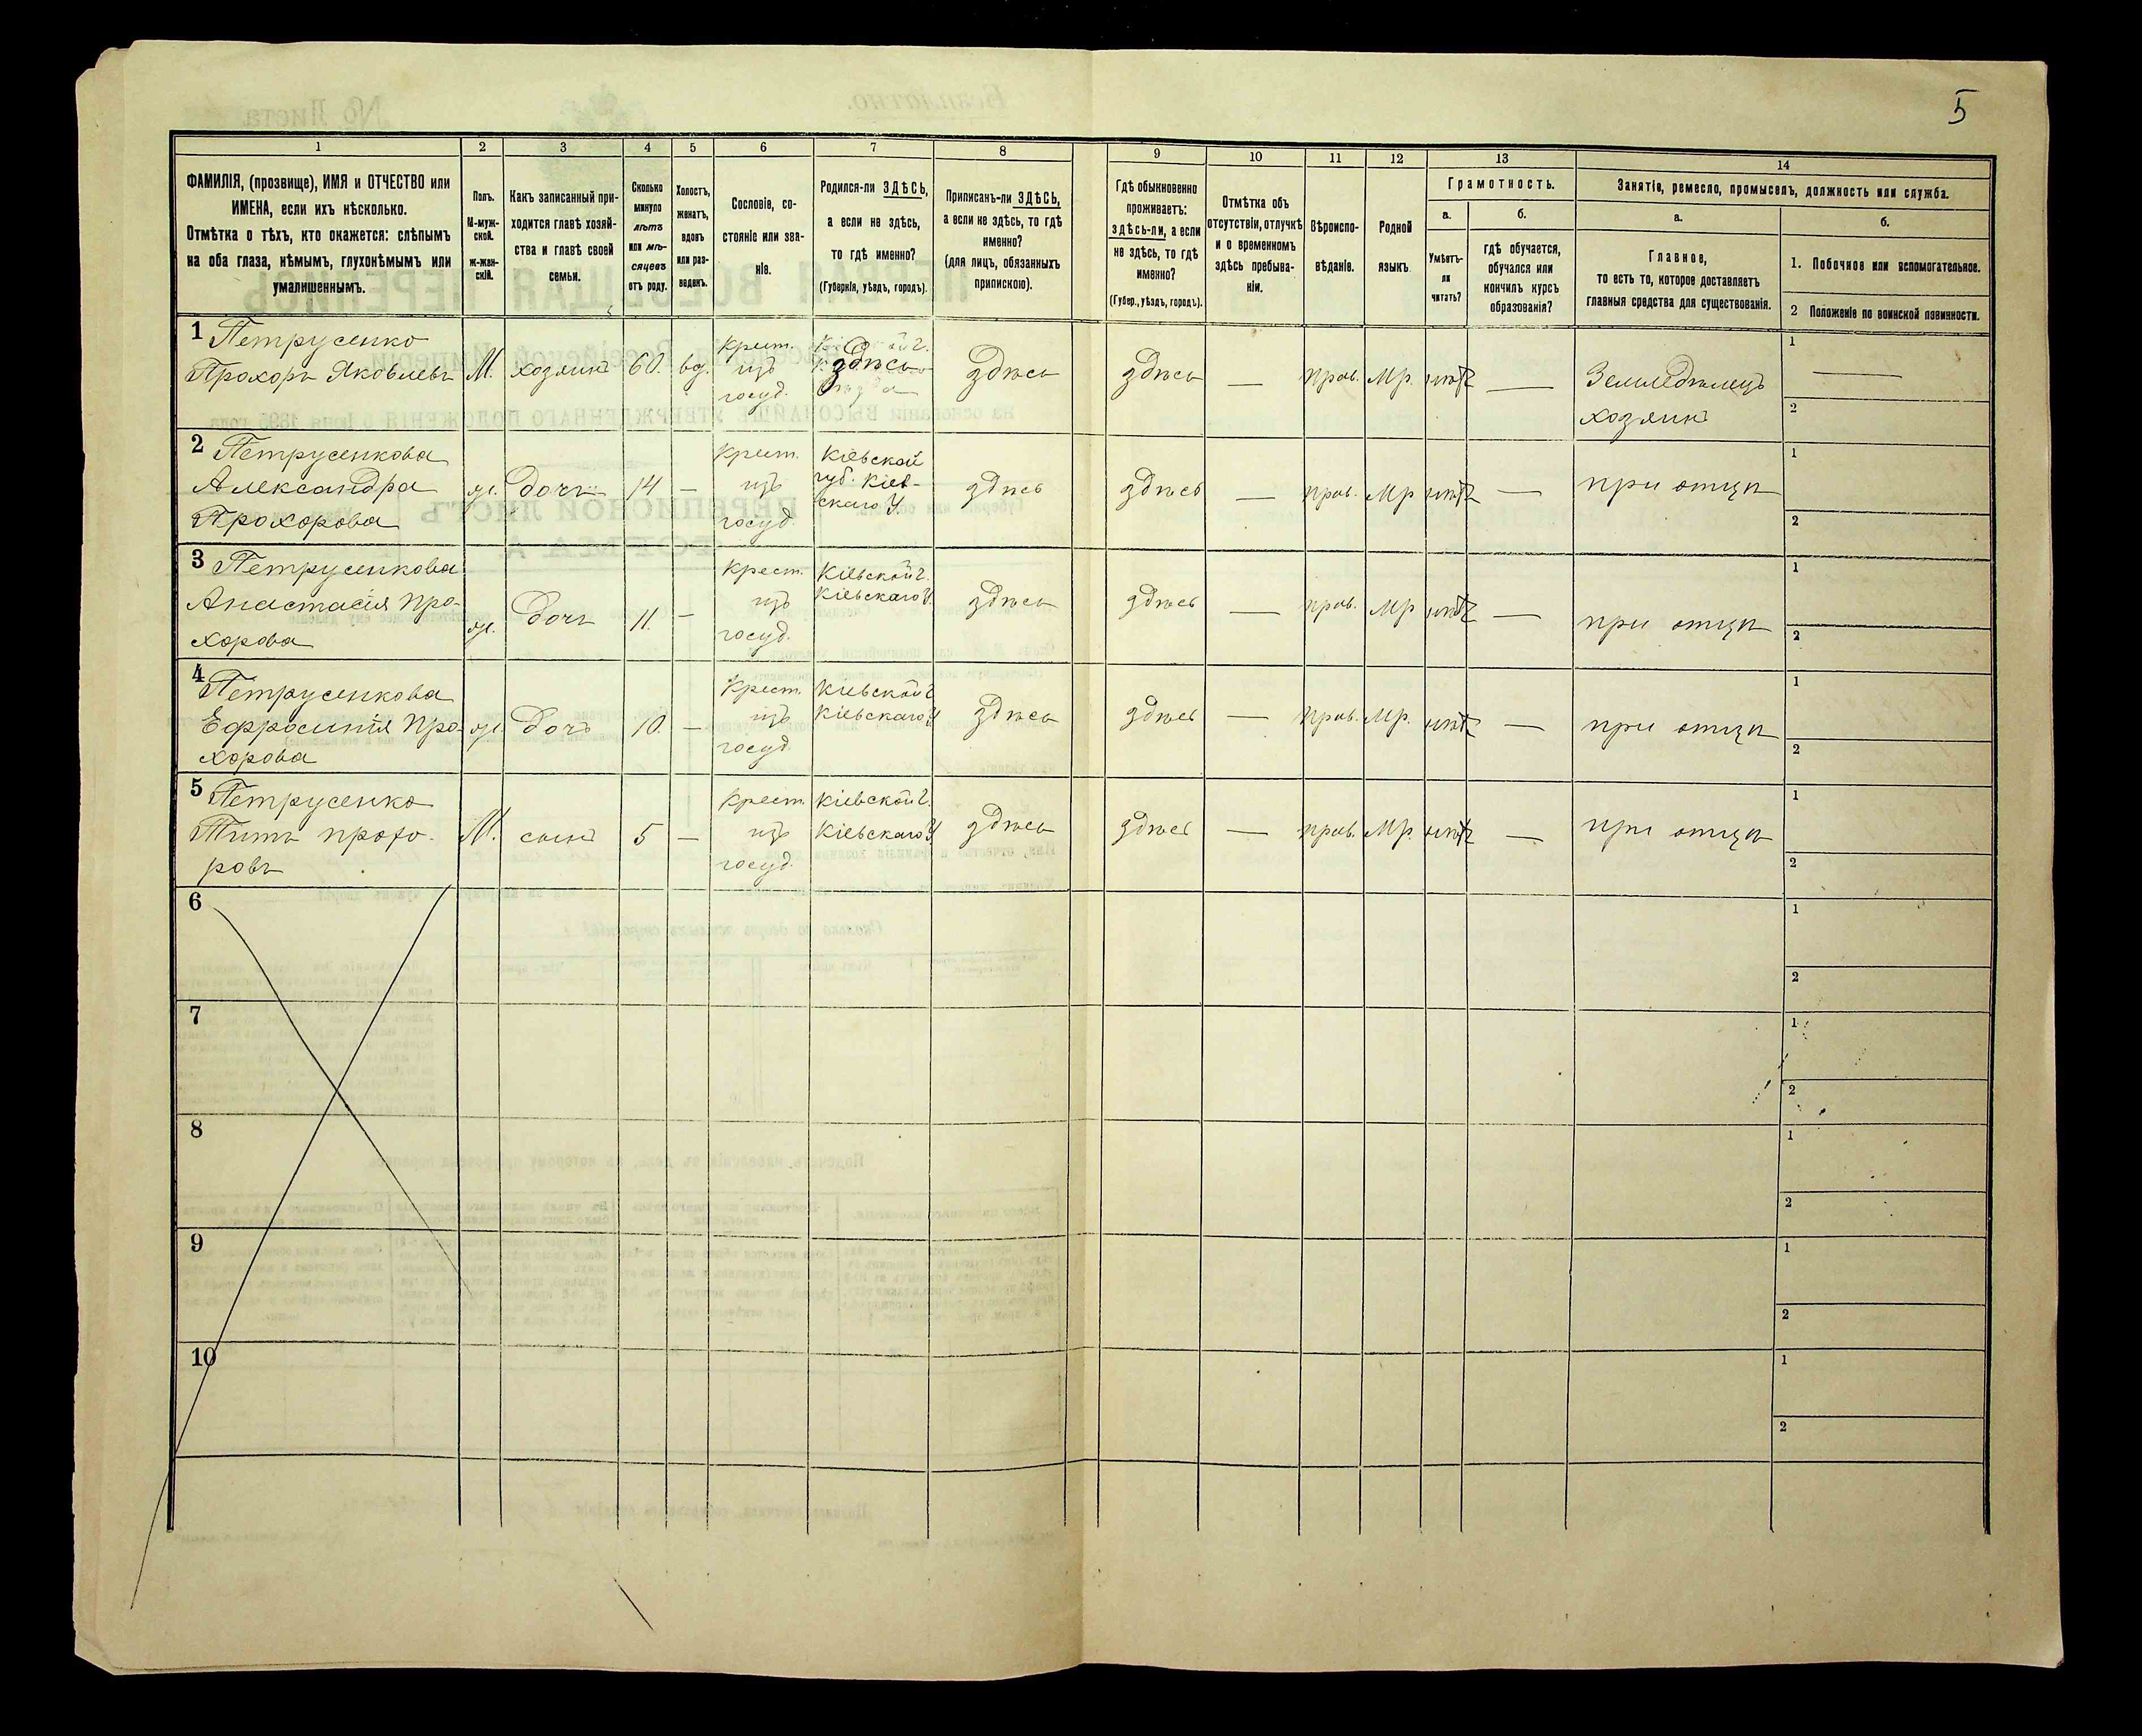 5
1 2 3 4 5 6 7 8 9 10 11 12 13 14
ФАМИЛІЯ, (прозвище), ИМЯ и ОТЧЕСТВО или
ИМЕНА, если ихъ нѣсколько.
Отмѣтка о тѣхъ, кто окажется: слѣпымъ
на оба глаза, нѣмымъ, глухонѣмымъ или
умалишеннымъ.
Полъ.
М-муж-
ской.
ж-жен-
скій.
Какъ записанный при-
ходится главѣ хозяй-
ства и главѣ своей
семьи.
Сколько
минуло
лѣтъ
или мѣ-
сяцевъ
отъ роду.
Холостъ,
женатъ,
вдовъ
или раз-
веденъ.
Сословіе, со-
стояніе или зва-
ніе.
Родился-ли ЗДѢСЬ,
а если не здѣсь,
то гдѣ именно?
(Губернія, уѣздъ, городъ).
Приписанъ-ли ЗДѢСЬ,
а если не здѣсь, то гдѣ
именно?
(для лицъ, обязанныхъ
припискою).
Гдѣ обыкновенно
проживаетъ:
здѣсь-ли, а если
не здѣсь, то гдѣ
именно?
(Губер., уѣздъ, городъ).
Отмѣтка объ
отсутствіи, отлучкѣ
и о временномъ
здѣсь пребыва-
ніи.
Вѣроиспо-
вѣданіе.
Родной
языкъ.
Грамотность.
а.
Умѣетъ-
ли
читать?
б.
гдѣ обучается,
обучался или
кончилъ курсъ
образованія?
Занятіе, ремесло, промыселъ, должность или служба.
а.
Главное,
то есть то, которое доставляетъ
главныя средства для существованія.
б.
1. Побочное или вспомогательное.
2 Положеніе по воинской повинности.
1 Петрусенко
Прохоръ Яковлевъ М. хозяинъ 60. вд.
Крест.
изъ
госуд.
здѣсь здѣсь здѣсь — прав. Мр. нѣтъ —
Земледѣлецъ
хозяинъ
1 —
2
2 Петрусенкова
Александра
Прохорова
ж. дочь 14 —
Крест.
изъ
госуд.
Кіевской
губ. Кіев-
скаго У.
здѣсь здѣсь — прав. Мр нѣтъ — при отцѣ
1
2
3 Петрусенкова
Анастасія Про-
хорова
ж. Дочь 11. —
Крест.
изъ
госуд.
Кіевской г.
Кіевскаго У.
здѣсь здѣсь — прав. Мр нѣтъ — при отцѣ
1
2
4 Петрусенкова
Ефросинія Про-
хорова
ж. Дочь 10. —
Крест.
изъ
госуд.
Кіевской г.
Кіевскаго У
здѣсь здѣсь — прав. Мр. нѣтъ — при отцѣ
1
2
5 Петрусенко
Титъ прохо-
ровъ
М. сынъ 5 —
Крест.
изъ
госуд.
Кіевской г.
Кіевскаго У
здѣсь здѣсь — прав. Мр. нѣтъ — при отцѣ
1
2
6
1
2
7
1
2
8
1
2
9
1
2
10
1
2